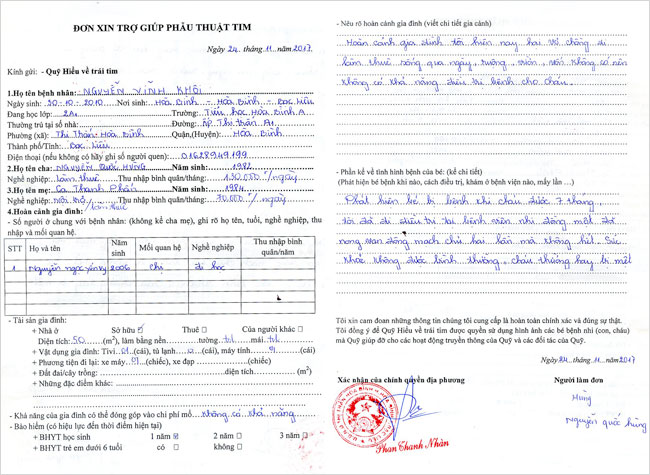 ĐƠN XIN TRỢ GIÚP PHẪU THUẬT TIM
Ngày 24 tháng 11 năm 2017
Kính gửi: - Quỹ Hiểu về trái tim
1.Họ tên bệnh nhân: NGUYỄN VĨNH KHÔI
Ngày sinh: 30-10-2010 Nơi sinh: Hòa Bình - Hòa Bình - Bạc Liêu
Đang học lớp: 2A1 Trường: Tiểu học Hòa Bình A
Thường trú tại số nhà: Đường: Ấp Thị trấn A1
Phường (xã): Thị Trấn Hòa Bình Quận,(Huyện): Hòa Bình
Thành phố/Tỉnh: Bạc Liêu
Điện thoại (nếu không có hãy ghi số người quen): 01628949199
2.Họ tên cha: NGUYỄN QUỐC HÙNG Năm sinh: 1982
Nghề nghiệp: làm thuê Thu nhập bình quân/tháng: 130.000 đ/ngày
3.Họ tên mẹ: Ca Thanh Năm sinh: 1984
Nghề nghiệp: nội trợ/làm thuê Thu nhập bình quân/tháng: 70.000 đ/ngày
4.Hoàn cảnh gia đình:
- Số người ở chung với bệnh nhân: (không kể cha mẹ), ghi rõ họ tên, tuổi, nghề nghiệp, thu
nhập và mối quan hệ.
STT Họ và tên Năm sinh Mối quan hệ Nghề nghiệp Thu nhập bình quân/năm
1 Nguyễn ngọc 2006 chị đi học
- Tài sản gia đình:
+ Nhà ở Sở hữu Thuê ☐ Của người khác ☐
Diện tích: 50 (m²), làm bằng nền: tường: mái:
+ Vật dụng gia đình: Tivi: 01 (cái), tủ lạnh (cái), máy tính (cái)
+ Phương tiện đi lại: xe máy 01 (chiếc), xe đạp (chiếc)
+ Đất đai/cây trồng: diện tích (m²)
+ Những đặc điểm khác:
- Khả năng của gia đình có thể đóng góp vào chi phí mổ: không có khả năng
- Bảo hiểm (có hiệu lực đến thời điểm hiện tại)
+ BHYT học sinh 1 năm ☑ 2 năm ☐ 3 năm ☐
+ BHYT trẻ em dưới 6 tuổi có ☐ không ☐
- Nêu rõ hoàn cảnh gia đình (viết chi tiết gia cảnh)
Hoàn cảnh gia đình tôi hiện nay hai vợ chồng đi
làm thuê sống qua ngày, ruộng, vườn, vốn không có nên
không có khả năng điều trị bệnh cho cháu.
- Phần kể về tình hình bệnh của bé: (kể chi tiết)
(Phát hiện bé bệnh khi nào, cách điều trị, khám ở bệnh viện nào, mấy lần …)
Phát hiện bé bị bệnh khi cháu được 7 tháng,
tôi đã đi điều trị tại bệnh viện nhi đồng một đã
nong van động mạch chủ hai lần mà không hết. Sức
khỏe không được bình thường, cháu thường hay bị mệt
Tôi xin cam đoan những thông tin chúng tôi cung cấp là hoàn toàn chính xác và đúng sự thật.
Tôi đồng ý để Quỹ Hiểu về trái tim được quyền sử dụng hình ảnh các bé bệnh nhi (con, cháu)
mà Quỹ giúp đỡ cho các hoạt động truyền thông của Quỹ và các đối tác của Quỹ.
Ngày 24 tháng 11 năm 2017
Xác nhận của chính quyền địa phương Người làm đơn
Hùng
Phan Thanh Nhàn Nguyễn quốc hùng